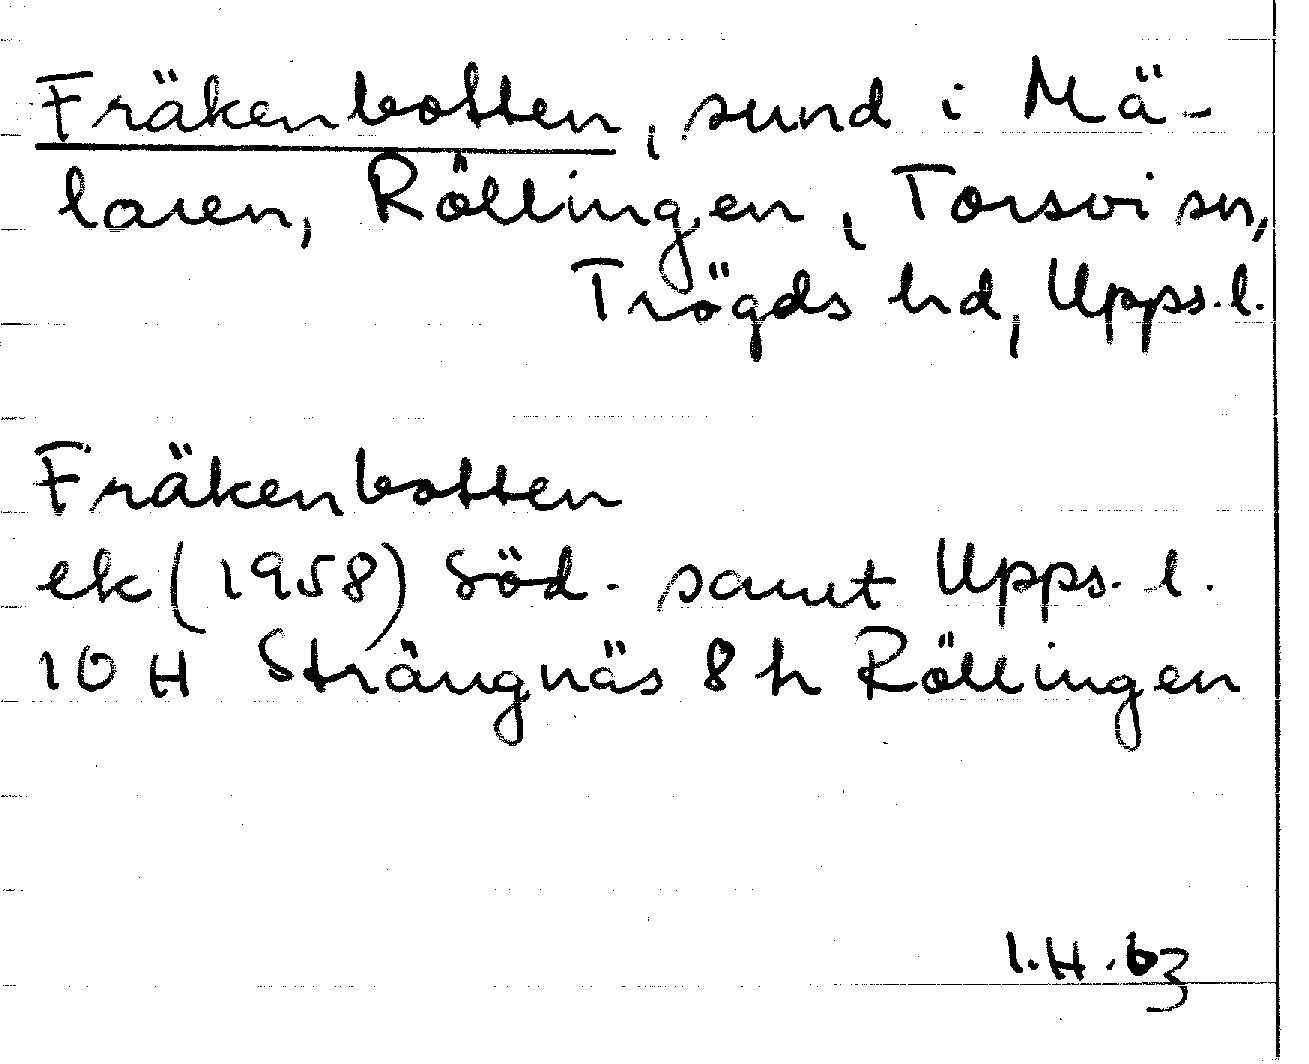 Fräkenbotten, sund i Mä-
laren, Röllingen, Torsvi sn,
Trögds hd, Upps. l.
Fräkenbotten
ek (1958) Söd. samt Upps. l.
10 H Strängnäs 8 h Röllingen
I.H. 63